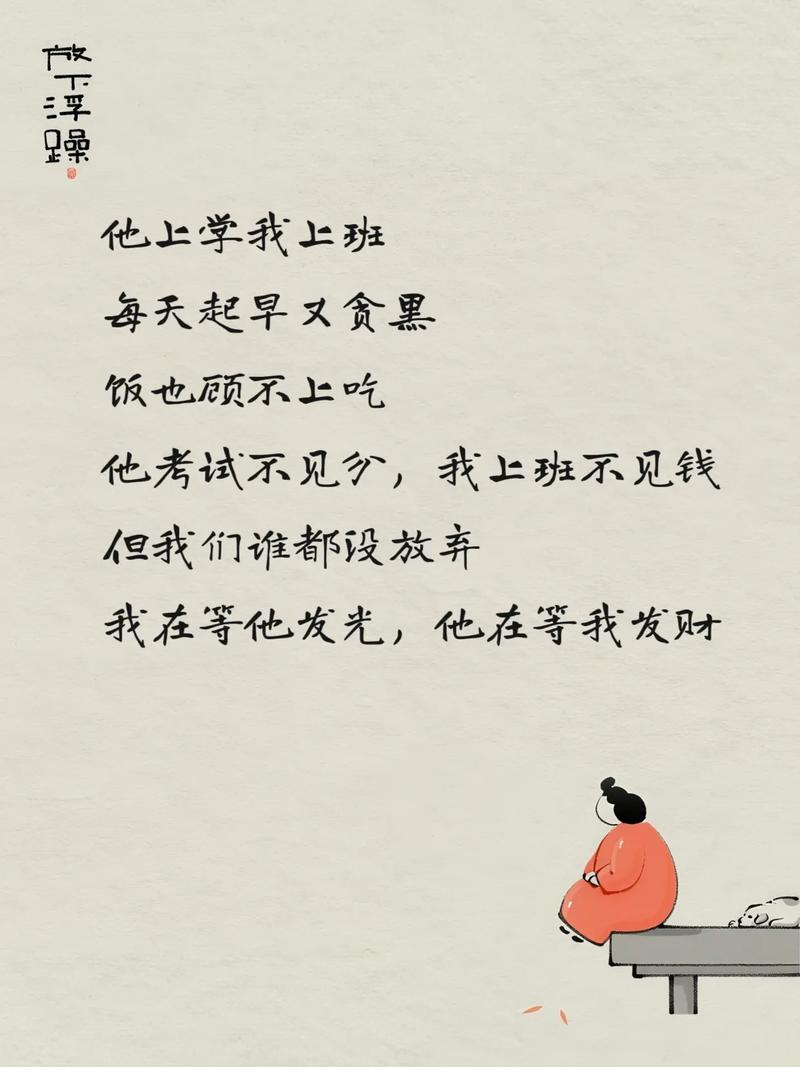 放下浮躁
他上学我上班
每天起早又贪黑
饭也顾不上吃
他考试不见分，我上班不见钱
但我们谁都没放弃
我在等他发光，他在等我发财